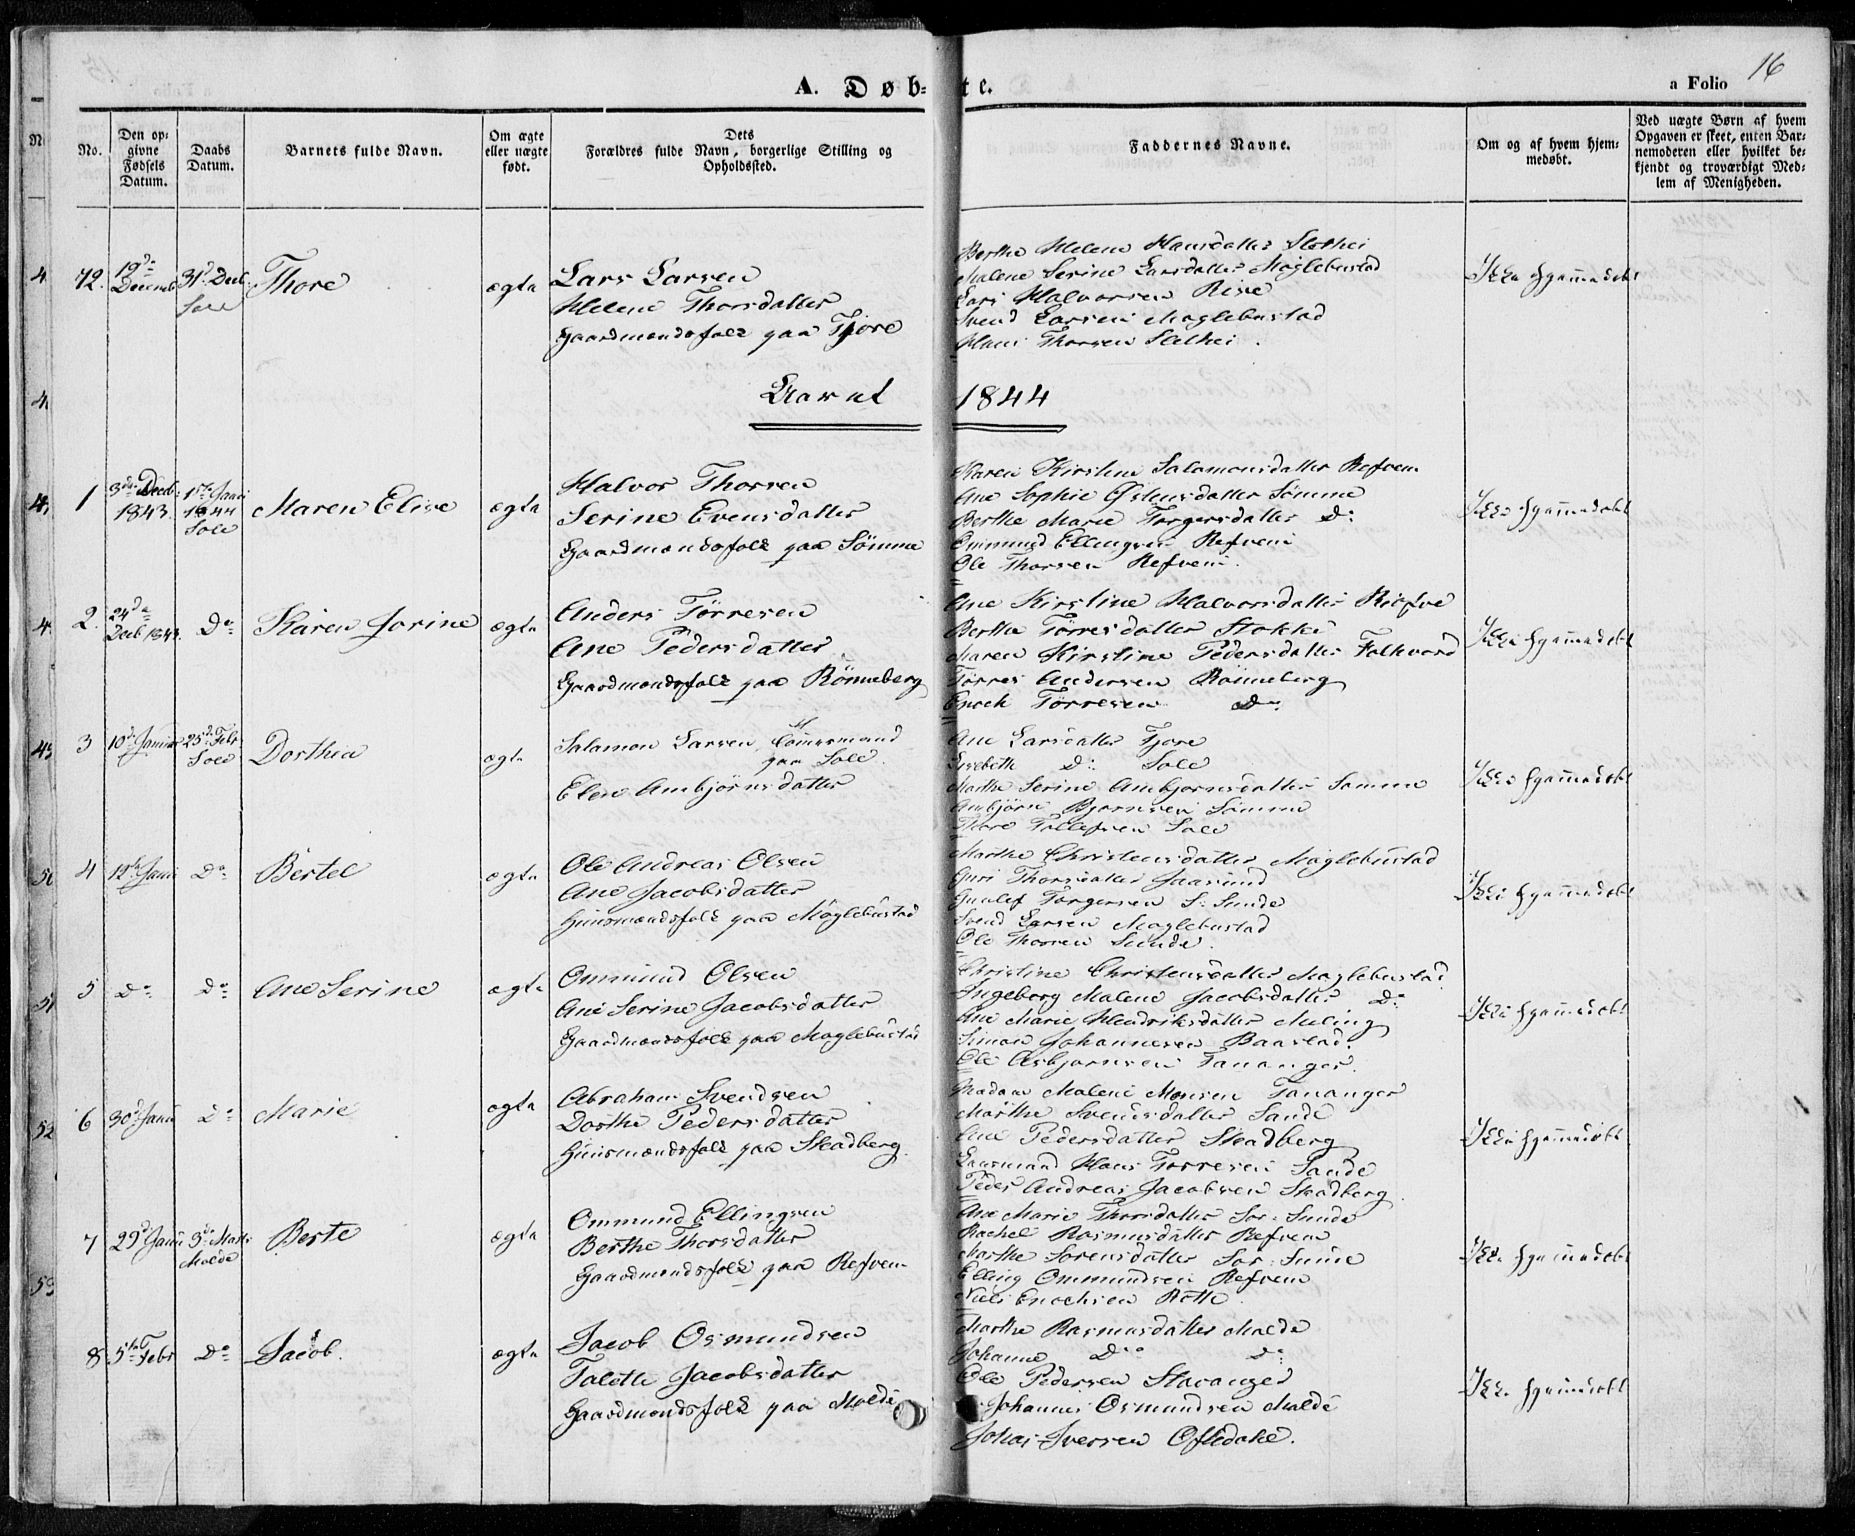 A. Døb-te.
a Folio 16
No.
Den op-
givne
Fødsels
Datum.
Daabs
Datum.
Barnets fulde Navn.
Om ægte
eller uægte
født.
Dets
Forældres fulde Navn, borgerlige Stilling og
Opholdssted.
Faddernes Navne.
Om og af hvem hjem-
medøbt.
Ved uægte Børn af hvem
Opgaven er skeet, enten Bar-
nemoderen eller hvilket be-
kjendt og troværdigt Med-
lem af Menigheden.
72. 19de Decemb 31te Decb. Sole Thore ægte
Lars Larsen
Helene Thorsdatter
Gaardmandsfolk paa Tjore
Berthe Helene Hansdatter
Malene Serine Larsdatter Møglebustad
Lars Halvorsen Rise
Svend Larsen Moglebustad
Hans Thorsen
Ikke hjemmedøbt
Aaret 1844
1 3de Decb 1843. 1ste Janu 1844 Sole Maren Elise ægte
Halvor Thorsen
Serine Evensdatter
Gaardmandsfolk paa Sömme
Karen Kirstine Salamonsdatter Refvem
Ane Sophie Östensdatter Sömme
Berthe Marie Torgersdatter Do
Ommund Ellingsen Refvem
Ole Thorsen Refvem.
Ikke hjemmedøbt
2. 24de Decb 1843. Do Karen Jorine ægte
Anders Törresen
Ane Pedersdatter
Gaardmandsfolk paa Rönneberg
Ane Kirstine Halvorsdatter
Berthe Törresdatter Stokke
Maren Kirstine Pedersdatter Folkvord
Törres Andersen Rönneberg
Enoch Törresen Do
Ikke hjemmedøbt
3 10de Januar 25de Febr Sole Dorthea ægte
Salamon Larsen Huusmand
paa Sole.
Elen Ambjörnsdatter
Ane Larsdatter Tjore
Lisebeth Do Sole
Marthe Serine Ambjornsdatter Somme
Ambjörn Bjornsen Sömme
Thore Tollefsen Sole
Ikke hjemmedøbt
4 12te Janu Do Bertel ægte
Ole Andreas Olsen
Ane Jacobsdatter
Huusmandsfolk paa Möglebustad
Marthe Christensdatter Möglebustad
Guri Thorsdatter Jaasund
Gunlef Torgersen S: Sunde
Svend Larsen Moglebustad
Ole Thorsen Sunde.
Ikke hjemmedøbt
5 Do Do Ane Serine ægte
Ommund Olsen
Ane Serine Jacobsdatter
Gaardmandsfolk paa Moglebustad
Christine Christensdatter Moglebustad
Ingeborg Malene Jacobsdatter Do
Ane Marie Hendriksdatter Meling
Simon Johannesen Baastad.
Ole Asbjornsen Tananger.
Ikke hjemmedøbt
6 30de Janu Do Marie ægte
Abraham Svendsen
Dorthe Pedersdatter
Huusmandsfolk paa Skadberg.
Madam Malene Monsen Tananger
Marthe Svendsdatter Sande
Ane Pedersdatter Skadberg
Lensmand Hans Torresen Sande
Peder Andreas Jacobsen Skadberg.
Ikke hjemmedøbt
7 29de Janu 3de Marts Molde Berte ægte
Ommund Ellingsen
Berthe Thorsdatter
Gaardmandsfolk paa Refvem
Ane Marie Thorsdatter Sör-Sunde
Rachel Rasmusdatter Refvem
Marthe Sorensdatter Sör-Sunde
Elling Ommundsen Refvem
Niels Enochsen Rotte
Ikke hjemmedøbt
8 5te Febr Do Jacob. ægte
Jacob Osmundsen
Talette Jacobsdatter
Gaardmandsfolk paa Molde
Marthe Rasmusdatter Malde
Johanne Do Do
Ole Pedersen Stavanger
Johannes Osmundsen Malde
Johas Iversen Oftedahl.
Ikke hjemmedøbt